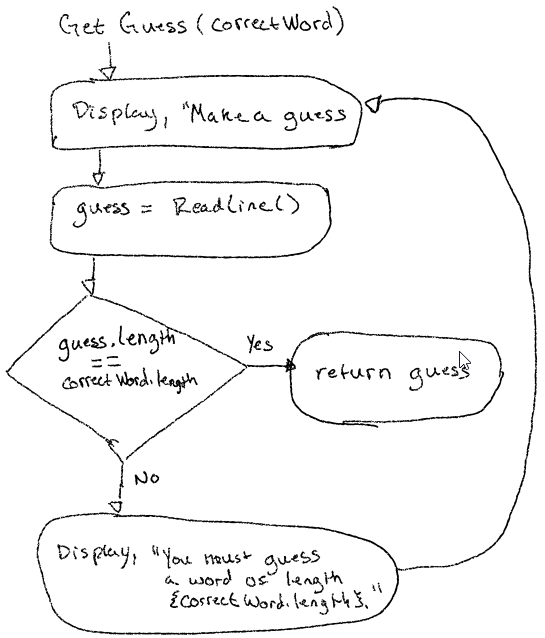 Get Guess (correctWord)
Display, "Make a guess
guess = Readline()
guess.length
==
correctWord.length
Yes
return guess
No
Display, "You must guess
a word of length
{correctWord.length}."